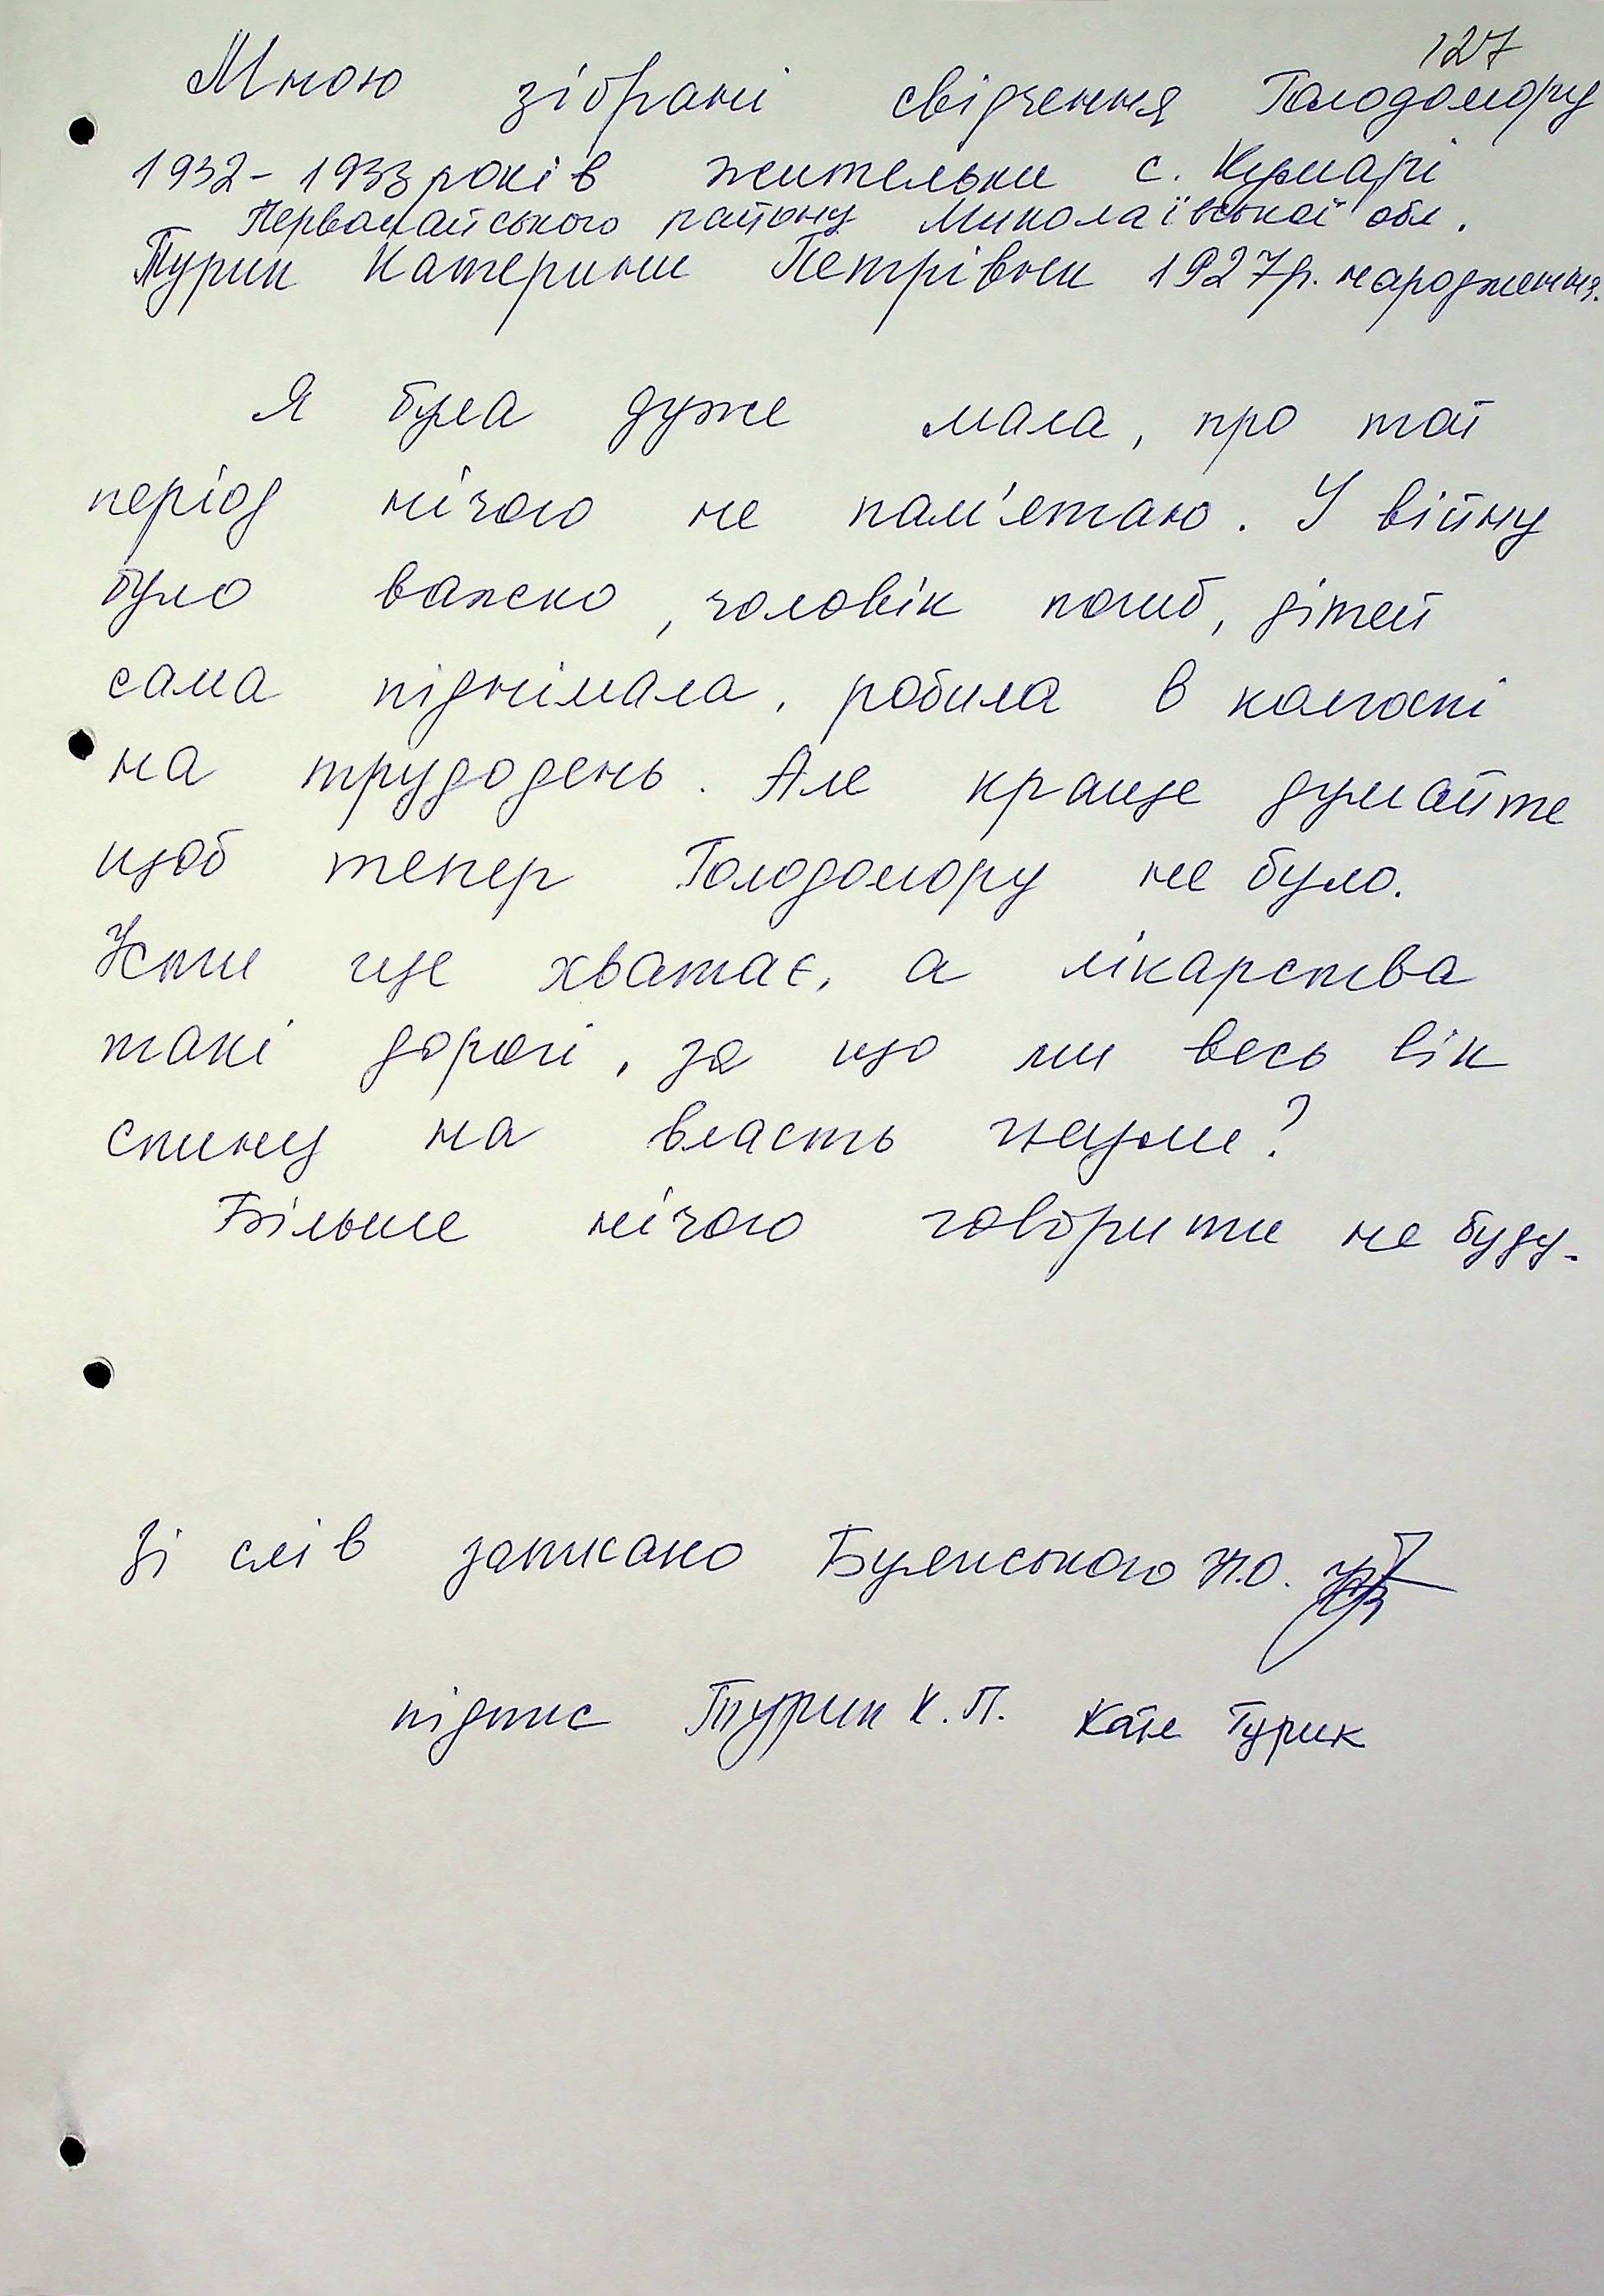 127
Мною зібрані свідчення Голодомору
1932-1933 років жительки с. Кумарі
Первомайського району Миколаївської обл.
Турик Катерини Петрівни 1927р. народження.
Я була дуже мала, про той
період нічого не пам'ятаю. У війну
було важко, чоловік погиб, дітей
сама піднімала, робила в колгоспі
на трудодень. Але краще думайте
щоб тепер Голодомору не було.
Їсти ще хватає, а лікарства
такі дорогі, за що ми весь вік
спину на власть гнули?
Більше нічого говорити не буду.
Зі слів записано Н.О.
підпис Турик К.П. Катя Турик